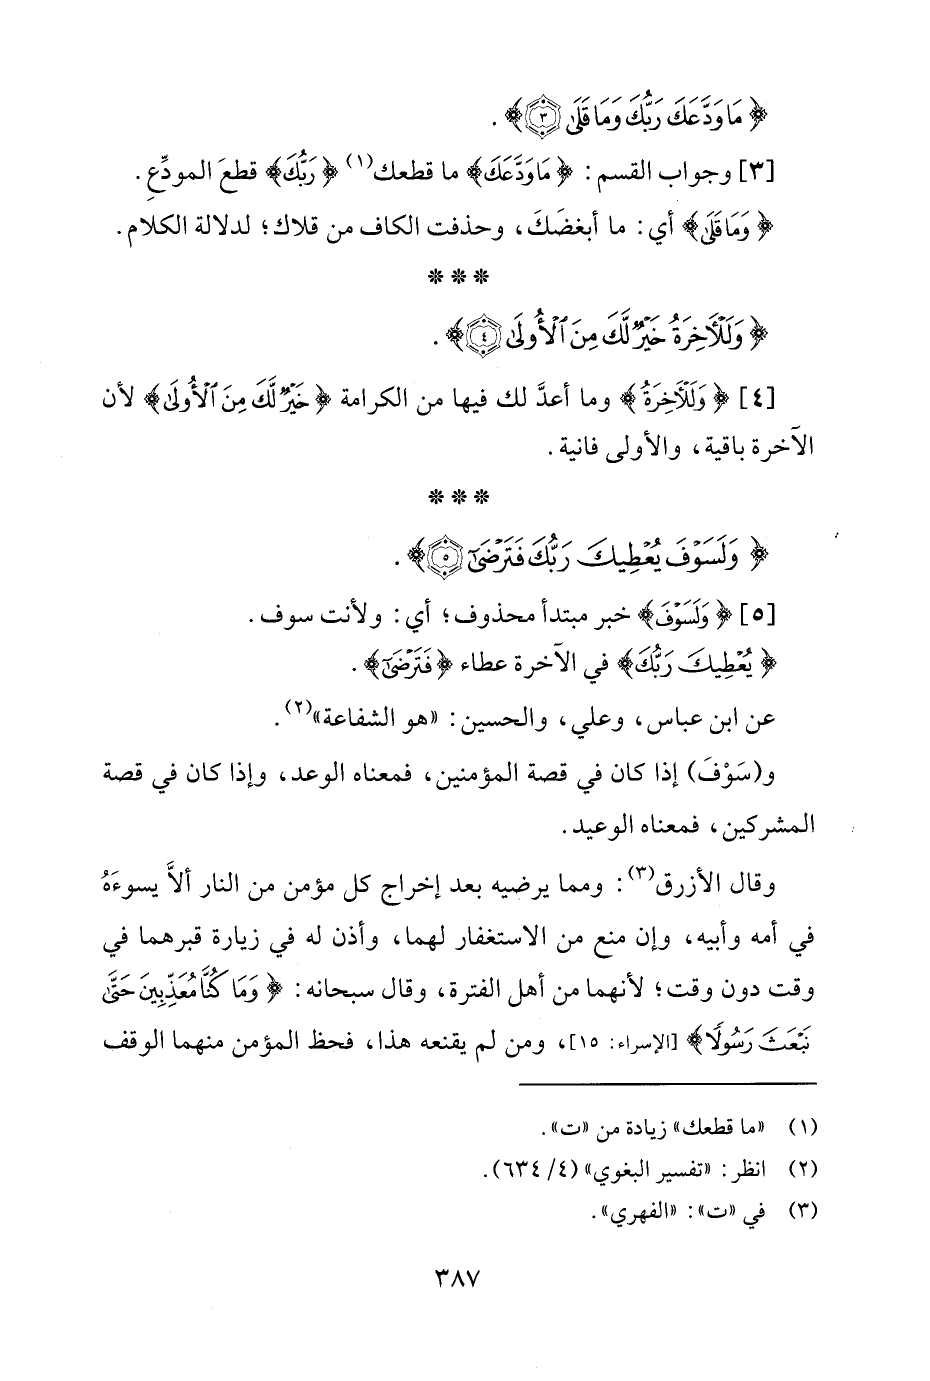 ﴿ مَا وَدَّعَكَ رَبُّكَ وَمَا قَلَىٰ ٣ ﴾ .
[٣] وجواب القسم : ﴿ مَا وَدَّعَكَ ﴾ ما قطعك(١) ﴿ رَبُّكَ ﴾ قطعَ المودِّعِ .
﴿ وَمَا قَلَىٰ ﴾ أي : ما أبغضَكَ ، وحذفت الكاف من قلاك ؛ لدلالة الكلام .
***
﴿ وَلَلْآخِرَةُ خَيْرٌ لَّكَ مِنَ ٱلْأُولَىٰ ٤ ﴾ .
[٤] ﴿ وَلَلْآخِرَةُ ﴾ وما أعدَّ لك فيها من الكرامة ﴿ خَيْرٌ لَّكَ مِنَ ٱلْأُولَىٰ ﴾ لأن
الآخرة باقية ، والأولى فانية .
***
﴿ وَلَسَوْفَ يُعْطِيكَ رَبُّكَ فَتَرْضَىٰٓ ٥ ﴾ .
[٥] ﴿ وَلَسَوْفَ ﴾ خبر مبتدأ محذوف ؛ أي : ولأنت سوف .
﴿ يُعْطِيكَ رَبُّكَ ﴾ في الآخرة عطاء ﴿ فَتَرْضَىٰٓ ﴾ .
عن ابن عباس ، وعلي ، والحسين : «هو الشفاعة»(٢) .
و(سَوْفَ) إذا كان في قصة المؤمنين ، فمعناه الوعد ، وإذا كان في قصة
المشركين ، فمعناه الوعيد .
وقال الأزرق(٣) : ومما يرضيه بعد إخراج كل مؤمن من النار ألاَّ يسوءَهُ
في أمه وأبيه ، وإن منع من الاستغفار لهما ، وأذن له في زيارة قبرهما في
وقت دون وقت ؛ لأنهما من أهل الفترة ، وقال سبحانه : ﴿ وَمَا كُنَّا مُعَذِّبِينَ حَتَّىٰ
نَبْعَثَ رَسُولًا ﴾ [الإسراء: ١٥] ، ومن لم يقنعه هذا ، فحظ المؤمن منهما الوقف
(١) «ما قطعك» زيادة من «ت» .
(٢) انظر : «تفسير البغوي» (٤/ ٦٣٤) .
(٣) في «ت» : «الفهري» .
٣٨٧